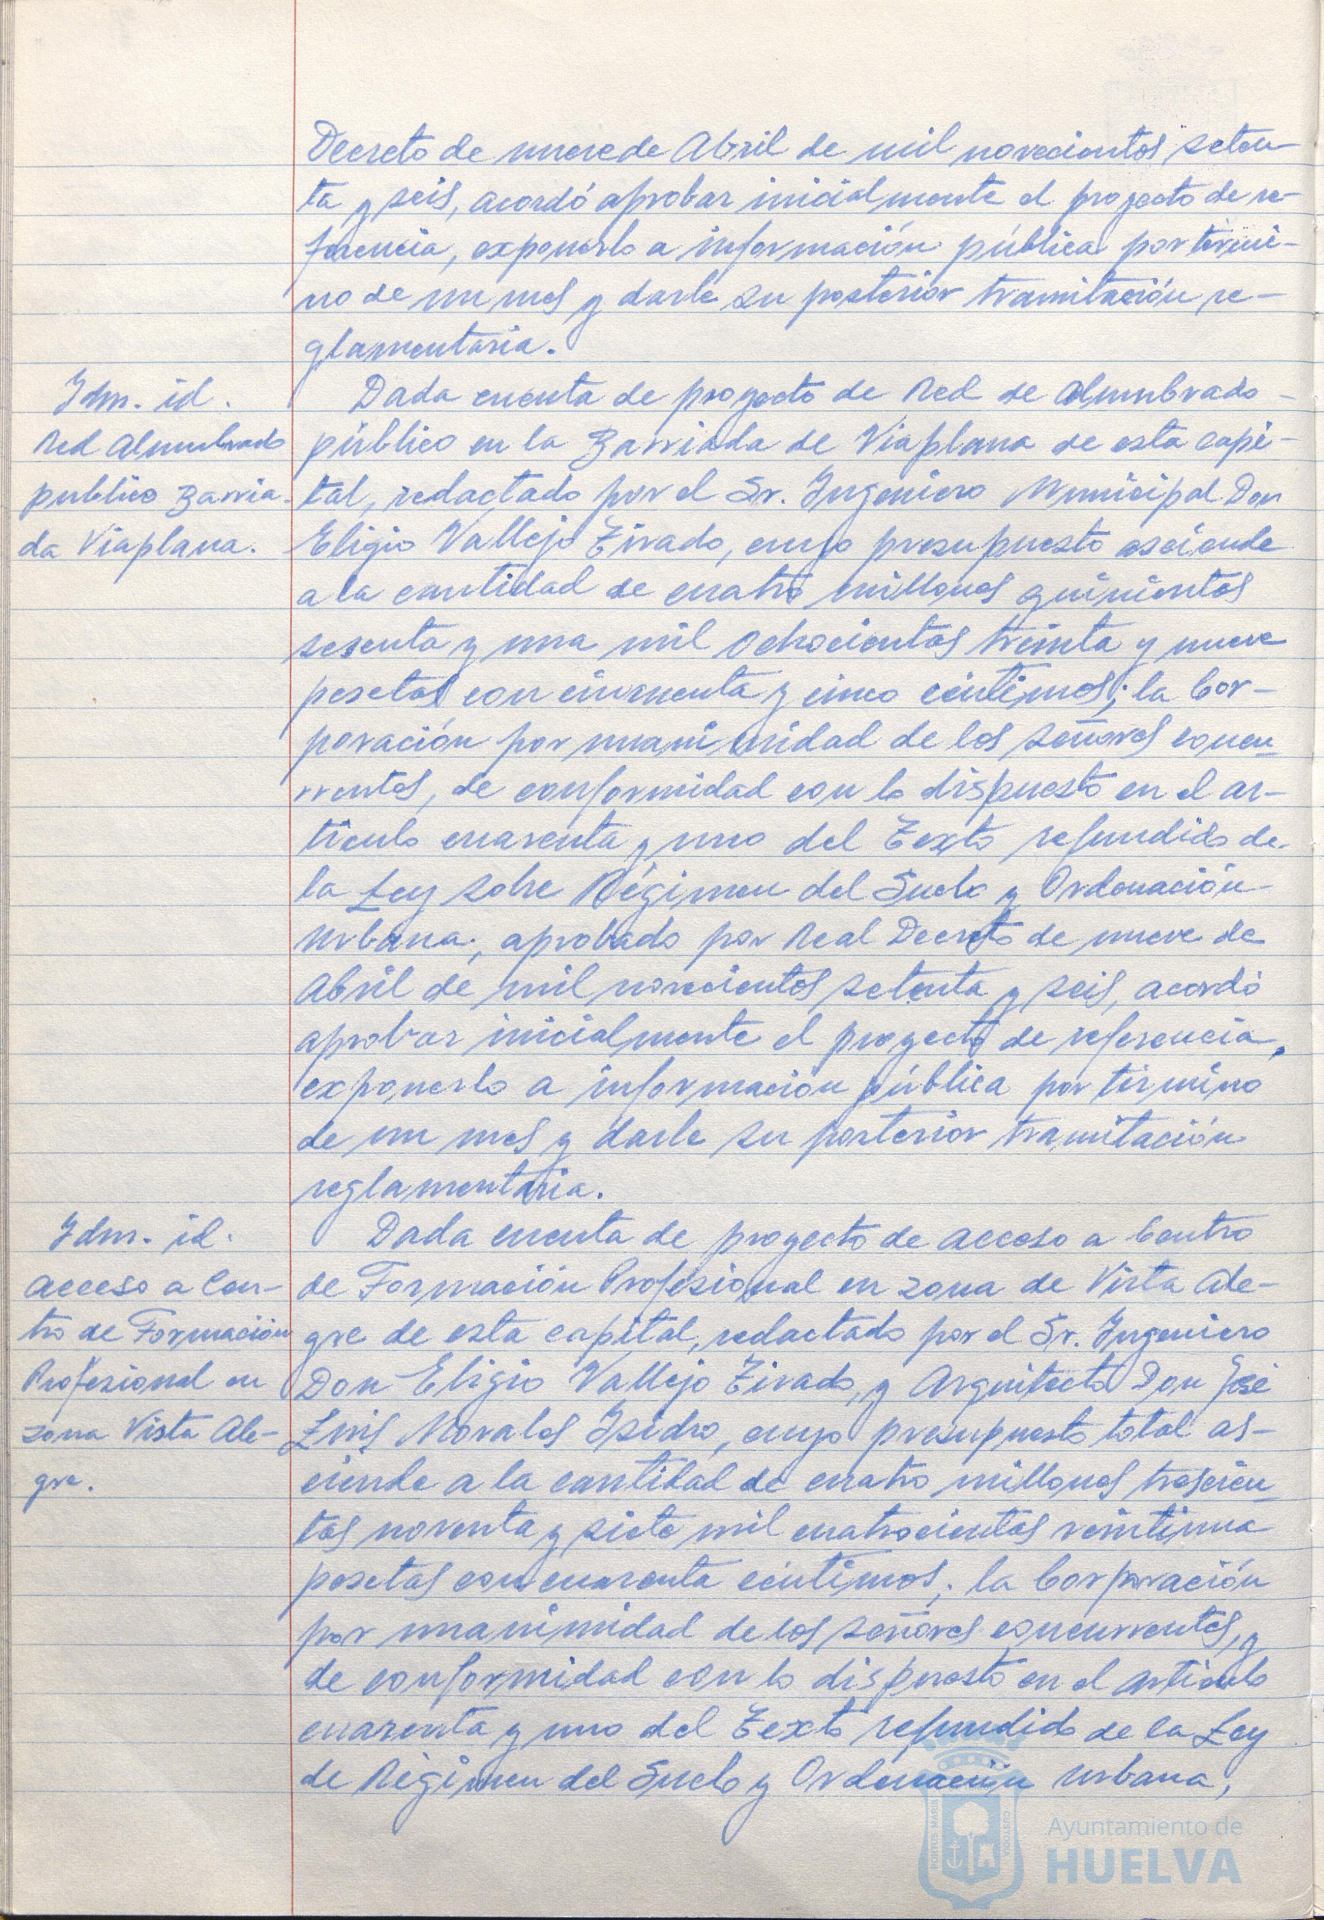 Decreto de nueve de Abril de mil novecientos seten-
ta y seis, acordó aprobar inicialmente el proyecto de re-
ferencia, exponerlo a información pública por térmi-
no de un mes y darle su posterior tramitación re-
glamentaria.
Idm. id.
Red Alumbrado
publico Barria-
da Viaplana.
Dada cuenta de proyecto de Red de Alumbrado
público en la Barriada de Viaplana de esta capi-
tal, redactado por el Sr. Ingeniero Municipal Don
Eligio Vallejo Tirado, cuyo presupuesto asciende
a la cantidad de cuatro millones quinientos
sesenta y una mil ochocientas treinta y nueve
pesetas con cincuenta y cinco céntimos; la Cor-
poración por unanimidad de los señores concu-
rrentes, de conformidad con lo dispuesto en el ar-
tículo cuarenta y uno del Texto refundido de
la Ley sobre Régimen del Suelo y Ordenación
Urbana, aprobado por Real Decreto de nueve de
Abril de mil novecientos setenta y seis, acordó
aprobar inicialmente el proyecto de referencia,
exponerlo a información pública por término
de un mes y darle su posterior tramitación
reglamentaria.
Idm. id.
acceso a Cen-
tro de Formación
Profesional en
zona Vista Ale-
gre.
Dada cuenta de proyecto de acceso a Centro
de Formación Profesional en zona de Vista Ale-
gre de esta capital, redactado por el Sr. Ingeniero
Don Eligio Vallejo Tirado, y Arquitecto Don José
Luis Morales Isidro, cuyo presupuesto total as-
ciende a la cantidad de cuatro millones trescien-
tas noventa y siete mil cuatrocientas veintiuna
pesetas con cuarenta céntimos; la Corporación
por unanimidad de los señores concurrentes, y
de conformidad con lo dispuesto en el artículo
cuarenta y uno del Texto refundido de la Ley
de Régimen del Suelo y Ordenación Urbana,
PORTUS MARIS
CUSTODIA
Ayuntamiento de
HUELVA